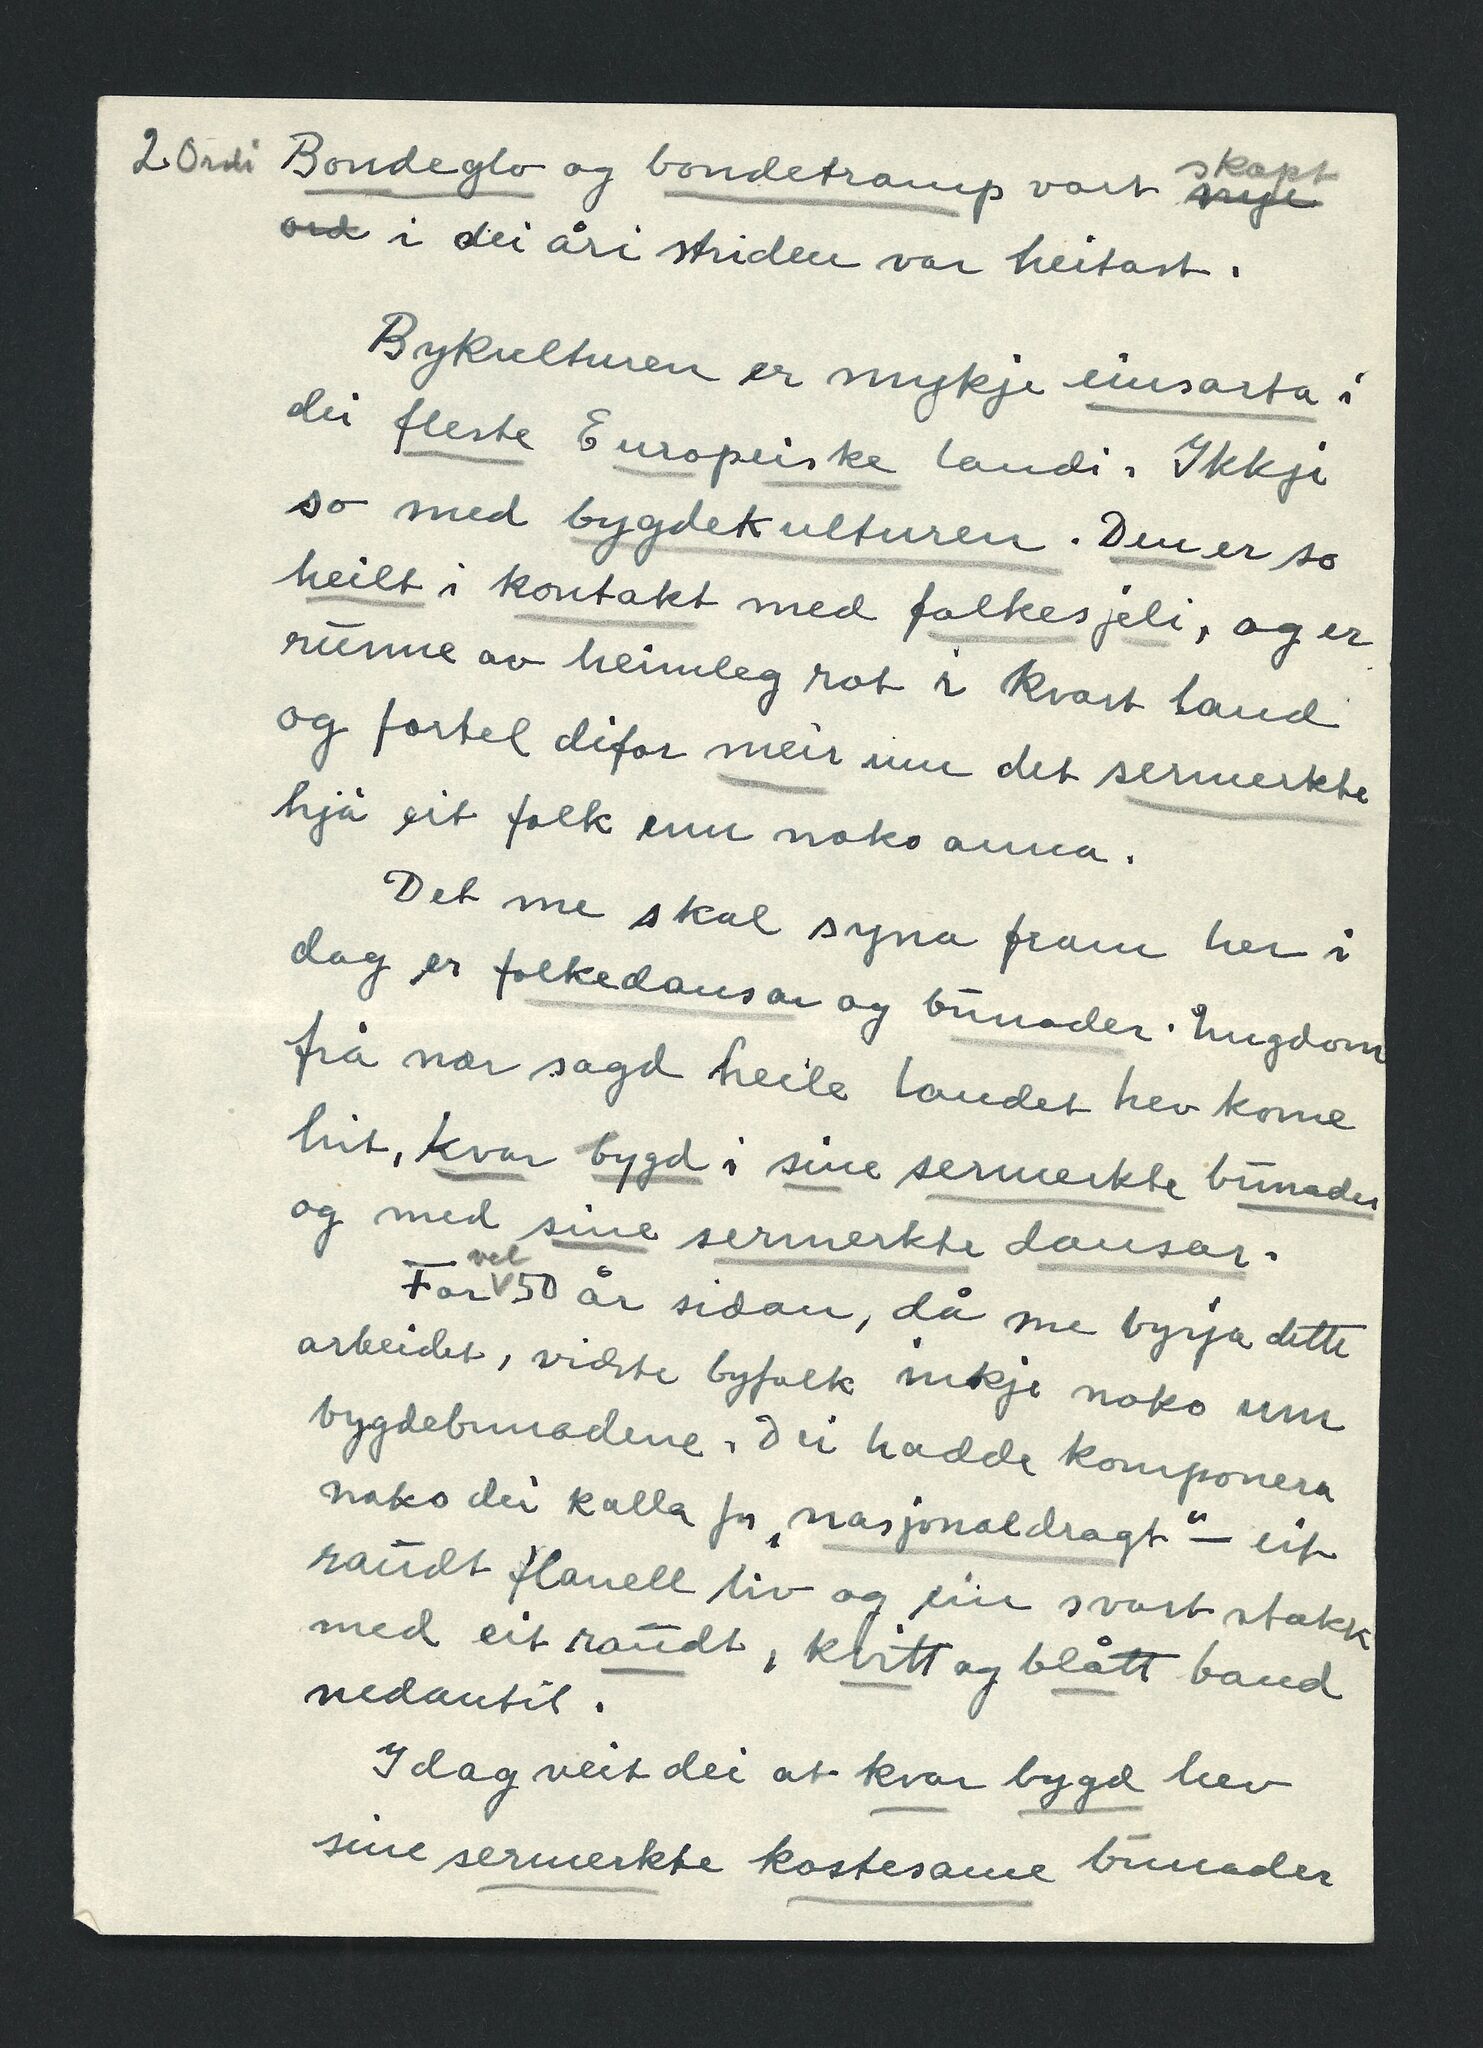 2. Ordi Bondeglo og bondetramp vart skapt ~~nye~~
~~ord~~ i dei åri striden var heitast.
Bykulturen er mykje einsarta i
dei fleste Europeiske landi. Ikkje
so med bygdekulturen. Den er so
heilt i kontakt med folkesjeli, og er
runne av heimleg rot i kvart land
og fortel difor meir um det sermerkte
hjå eit folk enn noko anna.
Det me skal syna fram her i
dag er folkedansar og bunader. Ungdom
frå nær sagd heile landet hev kome
hit, kvar bygd i sine sermerkte bunader
og med sine sermerkte dansar.
For vel 50 år sidan, då me byrja dette
arbeidet, visste byfolk inkje noko um
bygdebunadene. Dei hadde komponera
noko dei kalla for „nasjonaldragt“ – eit
raudt flanell liv og ein svart stakk
med eit raudt, kvitt og blått band
nedantil.
I dag veit dei at kvar bygd hev
sine sermerkte kostesame bunader